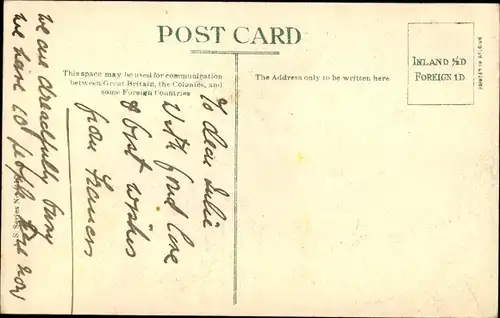 POST CARD
This space may be used for communication
between Great Britain, the Colonies, and
some Foreign Countries
The Address only to be written here
INLAND ½D
FOREIGN 1D
PRINTED IN BELGIUM
To dear Julie
With fond love
& best wishes
from Frances
We are dreadfully busy
we have 20 people here now